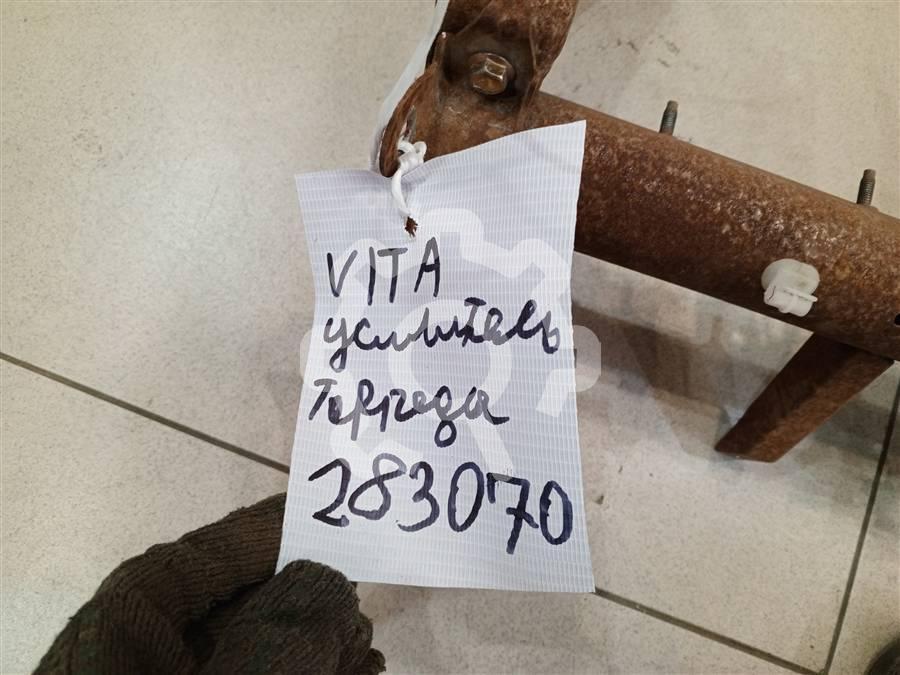 VITA
усилитель
Торреда
283070